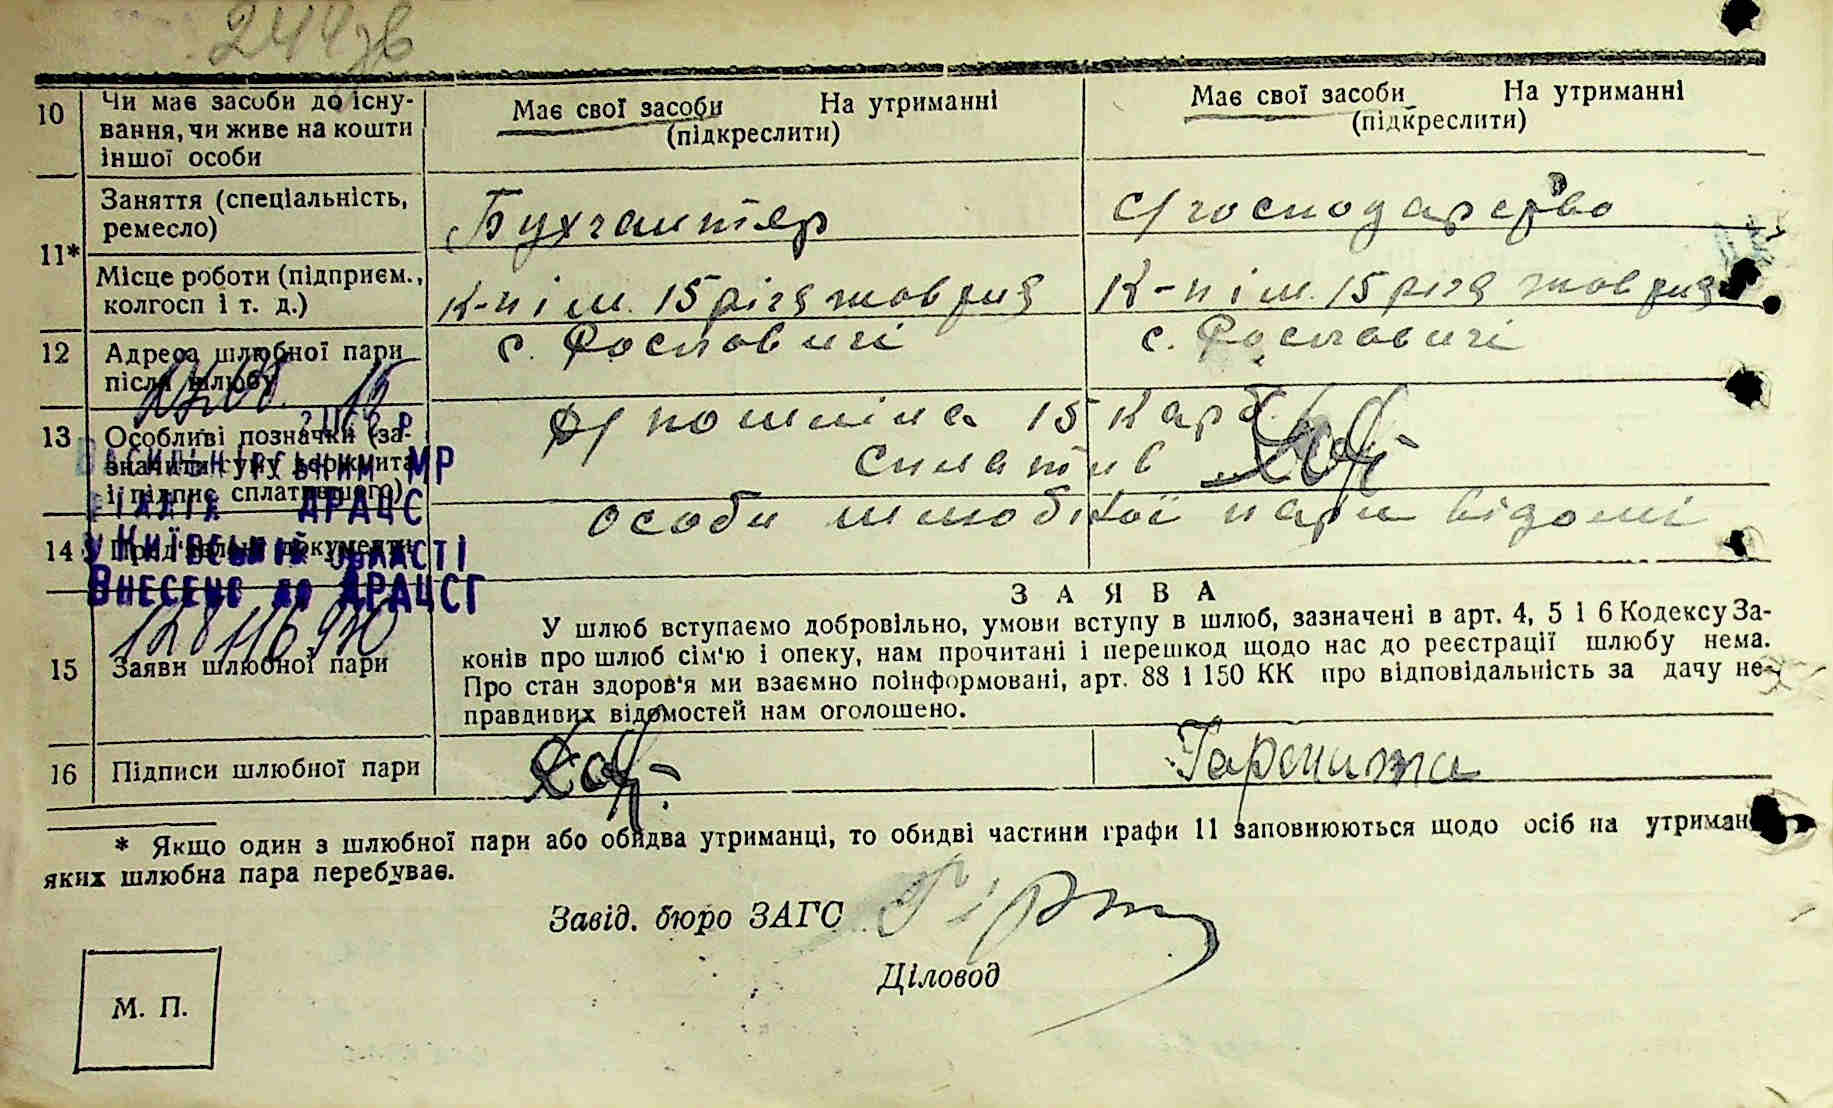 244 зв
10 Чи має засоби до існу-
вання, чи живе на кошти
іншої особи
Має свої засоби На утриманні
(підкреслити)
Має свої засоби На утриманні
(підкреслити)
11*
Заняття (спеціальність,
ремесло)
Бухгалтер
с/господарство
Місце роботи (підприєм.,
колгосп і т. д.)
К-п ім. 15 річя жовтня
К-п ім. 15 річя жовтня
12 Адреса шлюбної пари
після шлюбу
с. Рославичі
с. Рославичі
13 Особливі позначки (за-
значити суму держмита
і підпис сплатившого)
д/ пошліна 15 карб.
сплатив
ВАСИЛЬКІВСЬКИМ МР
ВІДДІЛ ДРАЦС
У КИЇВСЬКІЙ ОБЛАСТІ
ВНЕСЕНО ДО ДРАЦСГ
14 Пред'явлені документи
особи шлюбної пари відомі
15 Заяви шлюбної пари
ЗАЯВА
У шлюб вступаємо добровільно, умови вступу в шлюб, зазначені в арт. 4, 5 і 6 Кодексу За-
конів про шлюб сім'ю і опеку, нам прочитані і перешкод щодо нас до реєстрації шлюбу нема.
Про стан здоров'я ми взаємно поінформовані, арт. 88 і 150 КК про відповідальність за дачу не-
правдивих відомостей нам оголошено.
16 Підписи шлюбної пари
* Якщо один з шлюбної пари або обидва утриманці, то обидві частини графи 11 заповнюються щодо осіб на утриман
яких шлюбна пара перебуває.
Завід. бюро ЗАГС
Діловод
М. П.